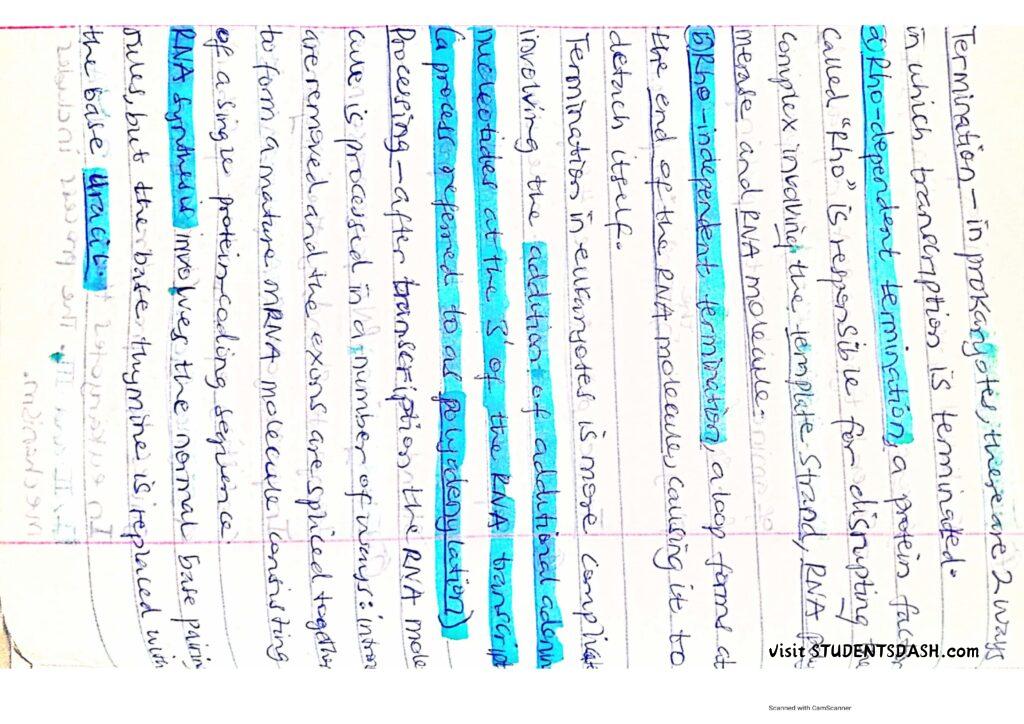 Termination - in prokaryotes, there are 2 ways
in which transcription is terminated.
a) Rho-dependent termination, a protein factor
called "Rho" is responsible for disrupting the
complex involving the template strand, RNA po
merase and RNA molecule.
b) Rho-independent termination, a loop forms at
the end of the RNA molecule, causing it to
detach itself.
Termination in eukaryotes is more complicat
involving the addition of additional adenin
nucleotides at the 3' of the RNA transcript
(a process referred to as polyadenylation)
Processing - after transcription the RNA mole
cule is processed in a number of ways: intron
are removed and the exons are spliced together
to form a mature mRNA molecule consisting
of a single protein-coding sequence
RNA synthesis involves the normal base pairing
rules, but the base thymine is replaced with
the base uracil.
visit STUDENTSDASH.com
Scanned with CamScanner